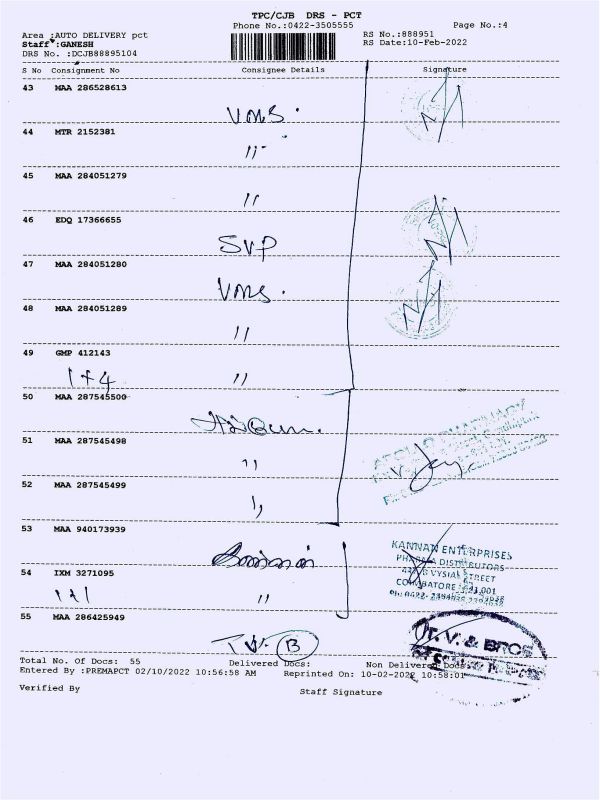 TPC/CJB DRS - PCT
Phone No.:0422-3505555
Page No.:4
Area :AUTO DELIVERY pct
RS No.:888951
Staff :GANESH
RS Date:10-Feb-2022
DRS No. :DCJB88895104
S No Consignment No Consignee Details Signature
43 MAA 286528613
VMS.
44 MTR 2152381
"
45 MAA 284051279
"
46 EDQ 17366655
SVP
47 MAA 284051280
VMS.
48 MAA 284051289
"
49 GMP 412143
1+4 "
50 MAA 287545500
51 MAA 287545498
"
52 MAA 287545499
"
53 MAA 940173939
KANNAN ENTERPRISES
PHARMA DISTRIBUTORS
VYSIAL STREET
54 IXM 3271095
COIMBATORE 641 001
1+1 "
55 MAA 286425949
T.V. B
T. V. & BROS
Total No. Of Docs: 55 Delivered Docs: Non Delivered Docs:
Entered By :PREMAPCT 02/10/2022 10:56:58 AM Reprinted On: 10-02-2022 10:58:01
Verified By Staff Signature